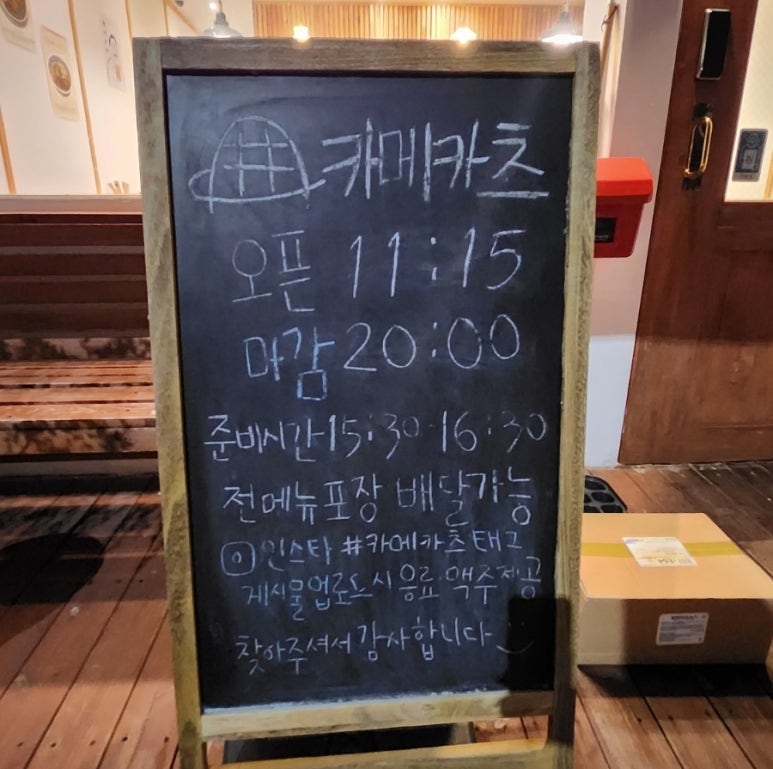 카메카츠
오픈 11:15
마감 20:00
준비시간 15:30-16:30
전메뉴포장 배달가능
인스타 #카메카츠 태그
게시물업로드시 음료, 맥주제공
찾아주셔서 감사합니다